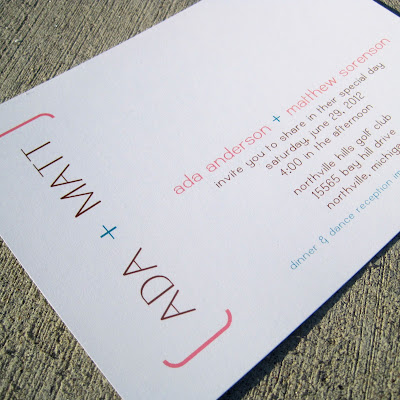 ADA + MATT
ada anderson + matthew sorenson
invite you to share in their special day
saturday, june 29, 2012
4:00 in the afternoon
northville hills golf club
15565 bay hill drive
northville, michigan
dinner & dance reception